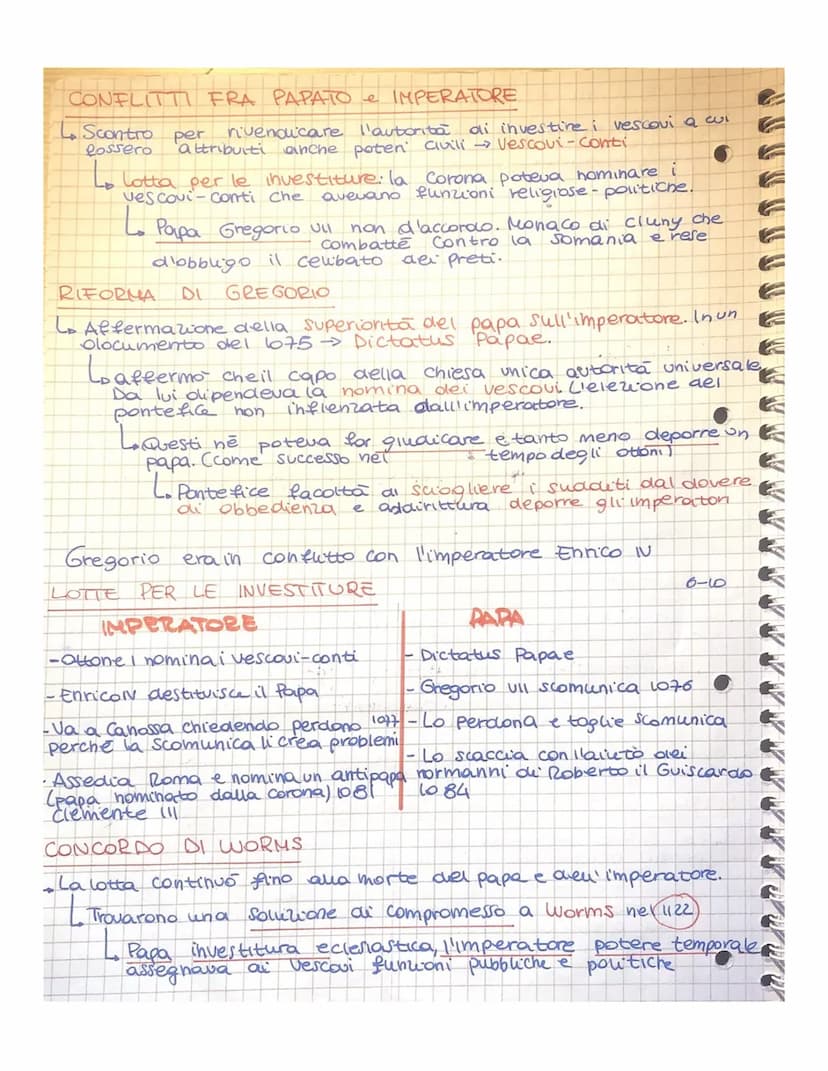 CONFLITTI FRA PAPATO e IMPERATORE
↳ Scontro per rivendicare l'autorità di investire i vescovi a cui
fossero attribuiti anche poteri civili → Vescovi-conti
↳ lotta per le investiture: la corona poteva nominare i
vescovi-conti che avevano funzioni religiose-politiche.
↳ Papa Gregorio VII non d'accordo. Monaco di Cluny che
combattè contro la somania e rese
d'obbligo il celibato dei preti.
RIFORMA DI GREGORIO
↳ Affermazione della superiorità del papa sull'imperatore. In un
documento del 1075 → Dictatus Papae.
↳ affermò che il capo della chiesa unica autorità universale
Da lui dipendeva la nomina dei vescovi L'elezione del
pontefice non inflenzata dall'imperatore.
↳ Questi nè poteva far giudicare e tanto meno deporre un
papa. (come successo nel tempo degli ottoni)
↳ Pontefice facoltà di sciogliere i sudditi dal dovere
di obbedienza e addirittura deporre gli imperatori
Gregorio era in conflitto con l'imperatore Enrico IV
6-10
LOTTE PER LE INVESTITURE
IMPERATORE PAPA
- Ottone I nomina i vescovi-conti - Dictatus Papae
- Enrico IV destituisce il Papa - Gregorio VII scomunica 1076
- Va a Canossa chiedendo perdono 1077 - Lo perdona e toglie scomunica
perchè la scomunica li crea problemi
- Lo scaccia con l'aiuto dei
· Assedia Roma e nomina un antipapa normanni di Roberto il Guiscardo
(papa nominato dalla corona) 1081 1084
Clemente III
CONCORDO DI WORMS
La lotta continuò fino alla morte del papa e dell'imperatore.
↳ Trovarono una soluzione di compromesso a Worms nel 1122
↳ Papa investitura eclesiastica, l'imperatore potere temporale
assegnava ai vescovi funzioni pubbliche e politiche